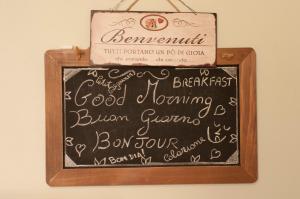 Benvenuti
TUTTI PORTANO UN PÒ DI GIOIA
BREAKFAST
Good Morning
Buon Giorno
BONJOUR
BOM DIA!